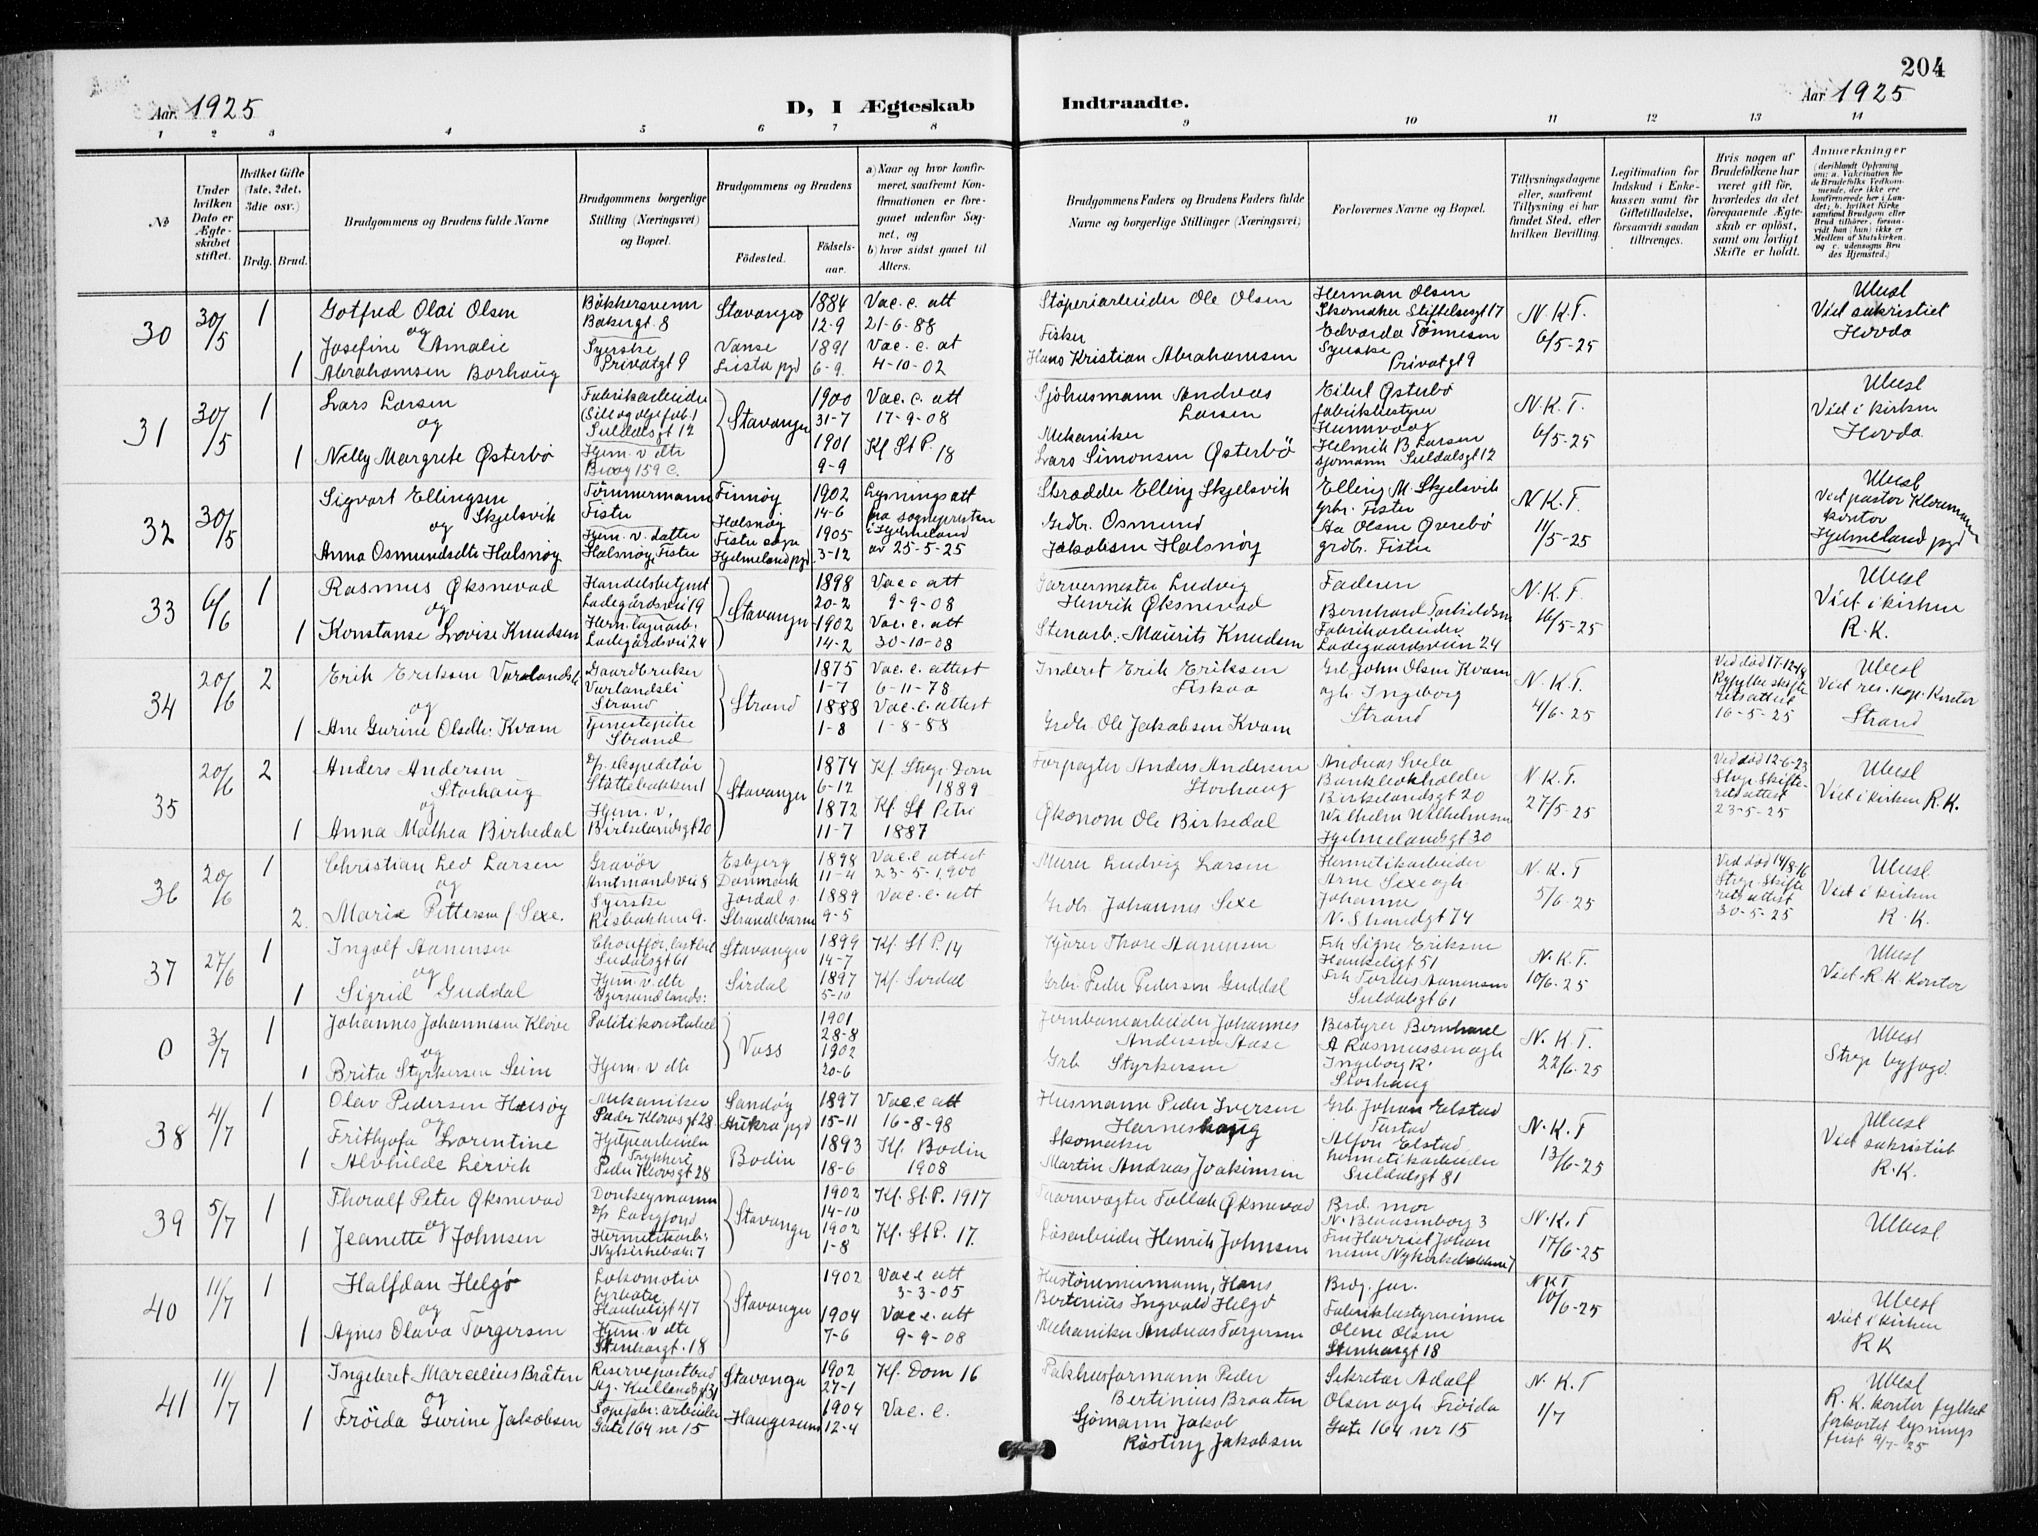 204
Aar. 1925
D, I Ægteskab
Indtraadte.
Aar 1925
1 2 3 4 5 6 7 8 9 10 11 12 13 14
No
Under hvilken Dato er Ægteskabet stiftet.
Hvilket Gifte (1ste, 2det, 3die osv.)
Brdg. Brud.
Brudgommens og Brudens fulde Navne
Brudgommens borgerlige Stilling (Næringsvei) og Bopæl.
Brudgommens og Brudens
Fødested.
Fødselsaar.
a) Naar og hvor konfirmeret, saafremt Konfirmationen er foregaaet udenfor Sognet, og
b) hvor sidst gaaet til Alters.
Brudgommens Faders og Brudens Faders fulde Navne og borgerlige Stillinger (Næringsvei)
Forlovernes Navne og Bopæl.
Tillysningsdagene eller, saafremt Tillysning ei har fundet Sted, efter hvilken Bevilling.
Legitimation for Indskud i Enkekassen samt for Giftetilladelse, forsaavidt saadan tiltrænges.
Hvis nogen af Brudefolkene har været gift før, hvorledes da det foregaaende Ægteskab er opløst, samt om lovligt Skifte er holdt.
Anmærkninger
30
30/5
1
Gotfred Olai Olsen
og
1
Josefine Amalie
Abrahamsen Borhaug
Bakersvenn
Bakergt 8
Syerske
Privatgt 9
Stavanger
Vanse
Lista pgd
1884
12-9
1891
6-9.
Vac. c. att
21-6-88
Vac. c. at
4-10-02
Støperiarbeider Ole Olsen
Fisker
Hans Kristian Abrahamsen
Herman Olsen
Skomaker Stiftelsesgt 17
Edvarda Tønnesen
Syerske
Privatgt 9
N. K. T.
6/5-25
Ubesl
Viet sakristiet
Hovda
31
30/5
1
Lars Larsen
og
1
Nelly Margrete Østerbø
Fabrikarbeider
Suldalsgt 12
Hjem. v. dtr
159 c.
Stavanger
1900
31-7
1901
9-9
Vac. c. att
17-9-08
Kf St P. 18
Sjøhusmann Andreas
Larsen
Mekaniker
Lars Simonsen Østerbø
Østerbø
fabrikbestyrer
Hunnvaag
Helmik B Larsen
sjømann Suldalsgt 12
N. K. T.
6/5-25
Ubesl
Viet i kirken
Hovda
32
30/5
Sigvart Ellingsen
og Skjelsvik
Anna Osmundsdtr Halsnøy
Tømmermann
Fister
Hjem. v. datter
Halsnøy Fister
Finnøy
Halsnøy
Fister sogn
Hjelmeland pgd
1902
14-6
1905
3-12
Lysnings att
fra sognepresten
i Hjelmeland
av 25-5-25
Skrædder Elling Skjelsvik
Grdbr. Osmund
Jakobsen Halsnøy
Elling M. Skjelsvik
grbr. Fister
Aa Olsen Øverebø
grdbr. Fister
N. K. T.
11/5-25
Ubesl
Viet pastor
kontor
Hjelmeland pgd
33
6/6
1
Rasmus Øksnevad
og
1
Konstanse Lovise Knudsen
Handelsbetjent
Ladegårdsvei 19
Ladegårdsvei 24
Stavanger
1898
20-2
1902
14-2
Vac. c att
9-9-08
Vac. c. att
30-10-08
Garvermester Ludvig
Henrik Øksnevad
Stenarb. Maurits Knudsen
Faderen
Bernhard Torkildsen
Fabrikarbeider
Ladegaardsveien 24
N. K. T.
16/5-25
Ubesl
Viet i kirken
R. K.
34
20/6
2
Erik Eriksen
og
1
Ane Gurine Olsdtr. Kvam
Gaardbruker
Varlandsli
Strand
Tjenestepike
Strand
Strand
1875
1-7
1888
1-8
Vac. c. attest
6-11-78
Vac. c. attest
1-8-88
Inderst Erik Eriksen
Fiskaa
Grdbr Ole Jakobsen Kvam
Grb John Olsen Kvam
ogh Ingeborg
Strand
N. K. T.
4/6-25
Ved død 17-12-18
Ryfylke skifte
rets attest
16-5-25
Ubesl
Viet res. kap. kontor
Strand
35
20/6
2
Anders Andersen
Storhaug
og
1
Anna Mathea Birkedal
D/p. ekspeditør
Støttebakken 1
Hjem. v.
Birkelandsgt 20
Stavanger
1874
6-12
1872
11-7
Kf. Stvgr. Dom
1889
Kf. St Petri
1887
Forpagter Anders Andersen
Storhaug
Økonom Ole Birkedal
Andreas Svela
Bankbokholder
Birkelandsgt 20
Wilhelm Wilhelmsen
Hjelmelandsgt 30
N. K. T.
27/5-25
Ved død 12-6-23
Stvgr Skifte
rets attest
23-5-25
Ubesl
Viet i kirken R. K.
36
20/6
1
Christian Leo Larsen
og
2.
Marie Pettersen f. Sexe.
Gravør
Amtmandsvei 8
Syerske
Risbakken 9.
Esbjerg
Danmark
Jordal s.
Strandebarm
1898
11-4
1889
9-5
Vac. c attest
23-5-1900
Vac. c. att
Murer Ludvig Larsen
Grdbr Johannes Sexe
Hermetikarbeider
Arne Sexe ogh
Johanne
N. Strandgt 74
N. K. T
5/6-25
Ved død 14/8-16
Stvgr Skifte
rets attest
30-5-25
Ubesl
Viet i kirken
R. K.
37
27/6
1
Ingolf Aanensen
og
1
Sigrid Guddal
Chauffør, lastbil
Suldalsgt 61
Hjem. v. dtr
Stavanger
Sirdal
1899
14-7
1897
5-10
Kf. St P. 14
Kf. Sirdal
Kjører Thore Aanensen
Grbr Peder Pedersen Guddal
Frk Signe Eriksen
Haukeligt 51
Frk Tordis Aanensen
Suldalsgt 61
N. K. T.
10/6-25
Ubesl
Viet R. K. kontor
0
3/7
1
Johannes Johannesen Kløve
og
1
Brita Styrkersen Seim
Politikonstabel
Hjem. v dtr
Voss
1901
28-8
1902
20-6
Jernbanearbeider Johannes
Andersen Aase
Grb Styrkersen
Bestyrer Bernhard
A Rasmussen ogh
Ingeborg R.
Storhaug
N. K. T.
22/6-25
Ubesl
Stvgr byfogd.
38
4/7
1
Olav Pedersen
og
Frithjofa Lorentine
1
Alvhilde Lervik
Mekaniker
Peder Klovsgt 28
Hjelpearbeider
Trykkeri
Peder Klovsgt 28
Sandøy
Aukra pgd
Bodin
1897
15-11
1893
18-6
Vac. c att
16-8-98
Kf. Bodin
1908
Husmann Peder Iversen
Harneshaug
Skomaker
Martin Andreas Joakimsen
Grb Johan Elstad
Alfon Elstad
hermetikarbeider
Suldalsgt 81
N. K. T
13/6-25
Ubesl
Viet sakristiet
R. K.
39
5/7
1
Thoralf Peter Øksnevad
og
1
Jeanette Johnsen
Donkeymann
D/p Langfond
Hermetikarb.
Nykirkebak. 7
Stavanger
1902
14-10
1902
1-8
Kf. St P. 1917
Kf. St P. 17.
Taarnvægter Tollak Øksnevad
Løsarbeider Henrik Johnsen
Brd. mor
N. Blaasenborg 3
Fru Harriet Johan
nesen Nykirkebakken 7
N. K. T
17/6-25
Ubesl
40
11/7
1
Halfdan Helgø
og
1
Agnes Olava Torgersen
Lokomotiv
fyrbøter
Haukeligt 47
Hjem. v dtr
Stenhargt. 18
Stavanger
1902
1904
7-6
Vac. c att
3-3-05
Vac. c. att
9-9-08
Hustømmermann, Hans
Bertinius Ingvald Helgø
Mekaniker Andreas Torgersen
Brdg. far.
Fabrikbestyrerinne
Olene Olsen
Stenhargt 18
N. K. T
10/6-25
Ubesl
Viet i kirken
R K
41
11/7
1
Ingebret Marcelius Bråten
og
1
Frøida Gurine Jakobsen
Reservepostbud
Kiellandsgt 31
Såpefabr. arbeider
Gate 164 nr 15
Stavanger
Haugesund
1902
27-1
1904
12-4
Kf. Dom 16
Vac. c.
Pakhusformann Peder
Bertinius Braaten
Sjømann Jakob
Røsting Jakobsen
Sekretær Adolf
Olsen ogh Frøida
Gate 164 nr 15
N. K. T
1/7
Ubesl
R. K. kontor fylket
forkortet lysnings
frist 9/7-25